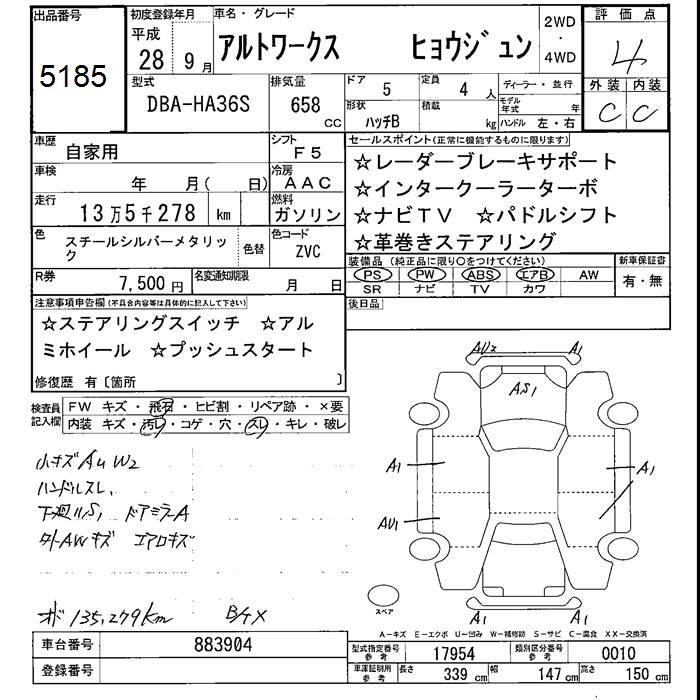 出品番号
5185
初度登録年月
平成
28 9月
車名・グレード
アルトワークス ヒョウジュン
2WD
・
4WD
評価点
4
外装 内装
C C
型式
DBA-HA36S
排気量
658
cc
ドア
5
定員
4 人
ディーラー・並行
形状
ハッチB
積載
kg
モデル年式 年
ハンドル 左・右
車歴
自家用
シフト
F5
車検
年 月( 日)
冷房
AAC
走行
13万5千278 km
燃料
ガソリン
色
スチールシルバーメタリック
色替
色コード
ZVC
R券
7,500円
名変通知期限
月 日
セールスポイント(正常に機能するものに限ります)
☆レーダーブレーキサポート
☆インタークーラーターボ
☆ナビTV ☆パドルシフト
☆革巻きステアリング
装備品 (純正品に限り○をつけてください)
PS PW ABS エアB AW
SR ナビ TV カワ
新車保証書
有・無
後日品
注意事項申告欄(不具合内容等は具体的に記入して下さい)
☆ステアリングスイッチ ☆アル
ミホイール ☆プッシュスタート
修復歴 有〔箇所 〕
検査員
記入欄
FW キズ・飛石・ヒビ割・リペア跡・×要
内装 キズ・汚レ・コゲ・穴・スレ・キレ・破レ
小キズ AU W2
ハンドルスレ、
下廻リS1 ドアミラーA
外AWキズ エアロキズ
オド 135,279km
AU2 A1
AS1
A1 A1
AU1
A1 A1
スペア
A-キズ E-エクボ U-凹み W-補修跡 S-サビ C-腐食 XX-交換済
車台番号 883904
登録番号
型式指定番号
参考
17954
類別区分番号
参考
0010
車庫証明用
参考
長さ 339 cm 幅 147 cm 高さ 150 cm